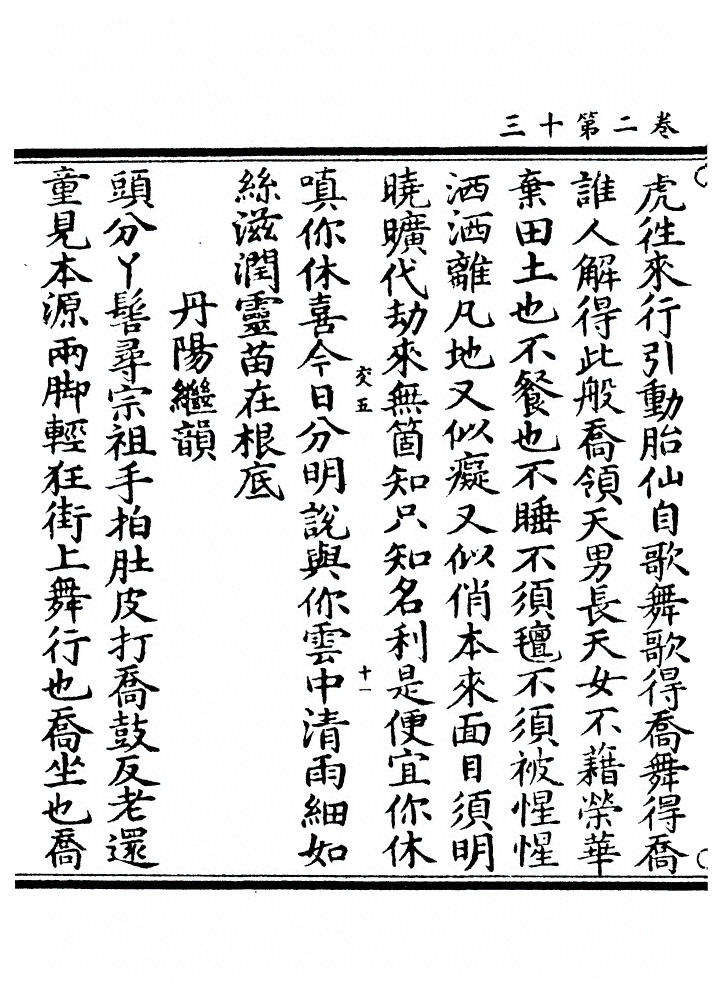 三十第二卷
虎徃來行引動胎仙自歌舞歌得喬舞得喬
誰人解得此般喬領天男長天女不藉榮華
棄田土也不餐也不睡不須氊不須被惺惺
洒洒離凡地又似癡又似俏本來面目須明
曉曠代劫來無箇知只知名利是便宜你休
交五
十一
嗔你休喜今日分明說與你雲中清雨細如
絲滋潤靈苗在根底
丹陽繼韻
頭分丫髻尋宗祖手拍肚皮打喬鼓反老還
童見本源兩脚輕狂街上舞行也喬坐也喬